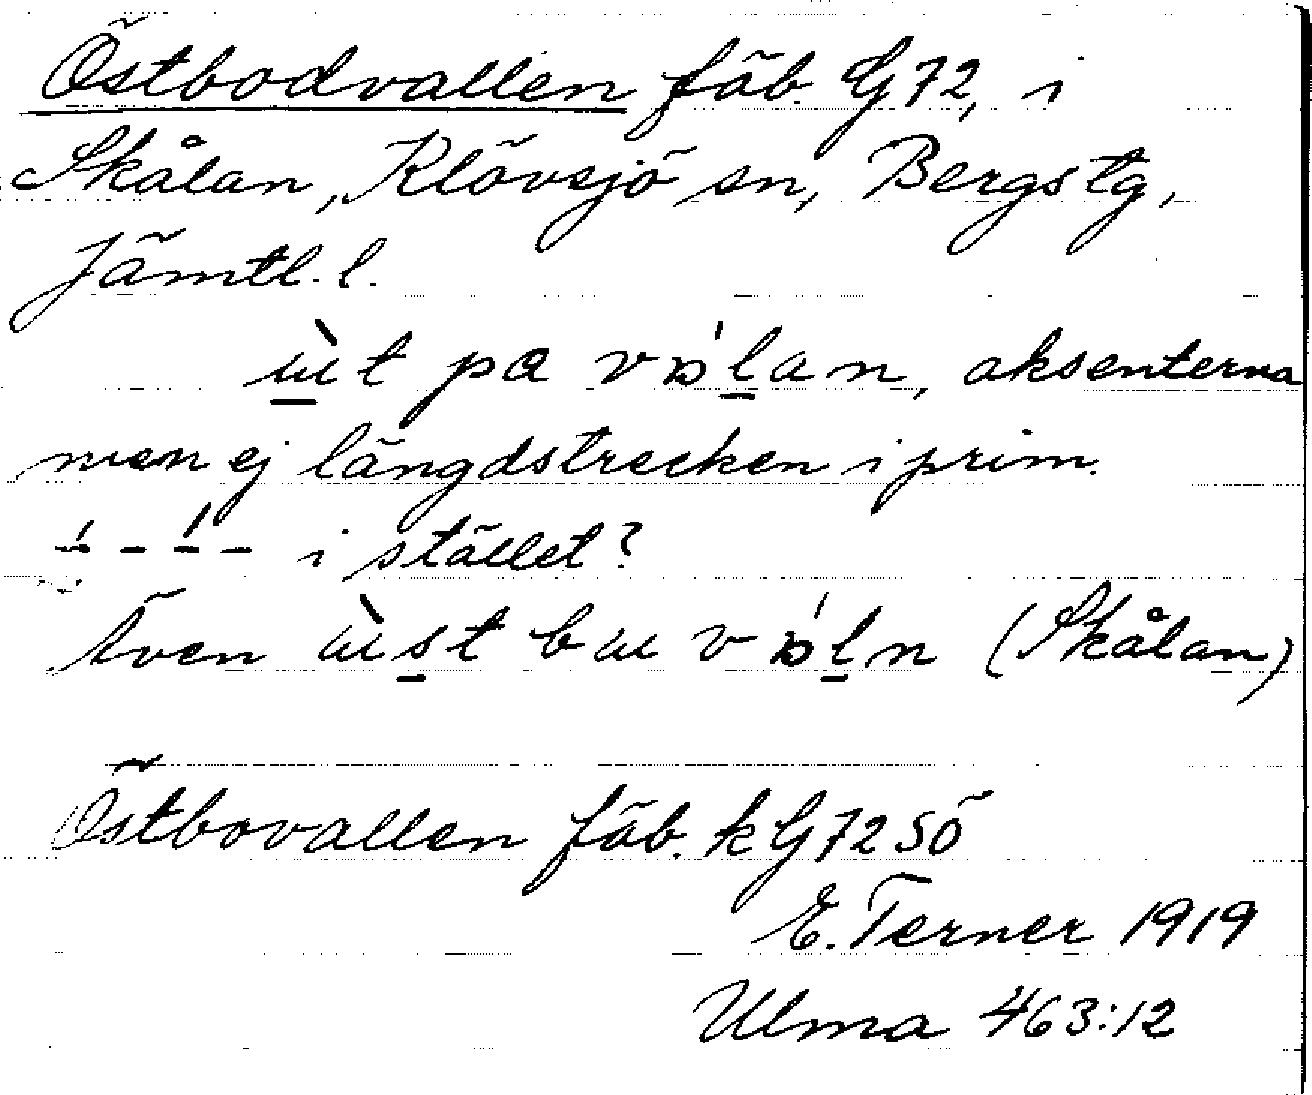 Östbodvallen fäb. G72, i
Skålan, Klövsjö sn, Bergs tg,
Jämtl. l.
ɯ̀t pa vɒ́lan, aksenterna
men ej längdstrecken i prim.
–́ – –́ – i stället?
Även ɯ̀st bɯ vɒ́ln (Skålan)
Östbovallen fäb. k G72 SÖ
E. Terner 1919
Ulma 463:12